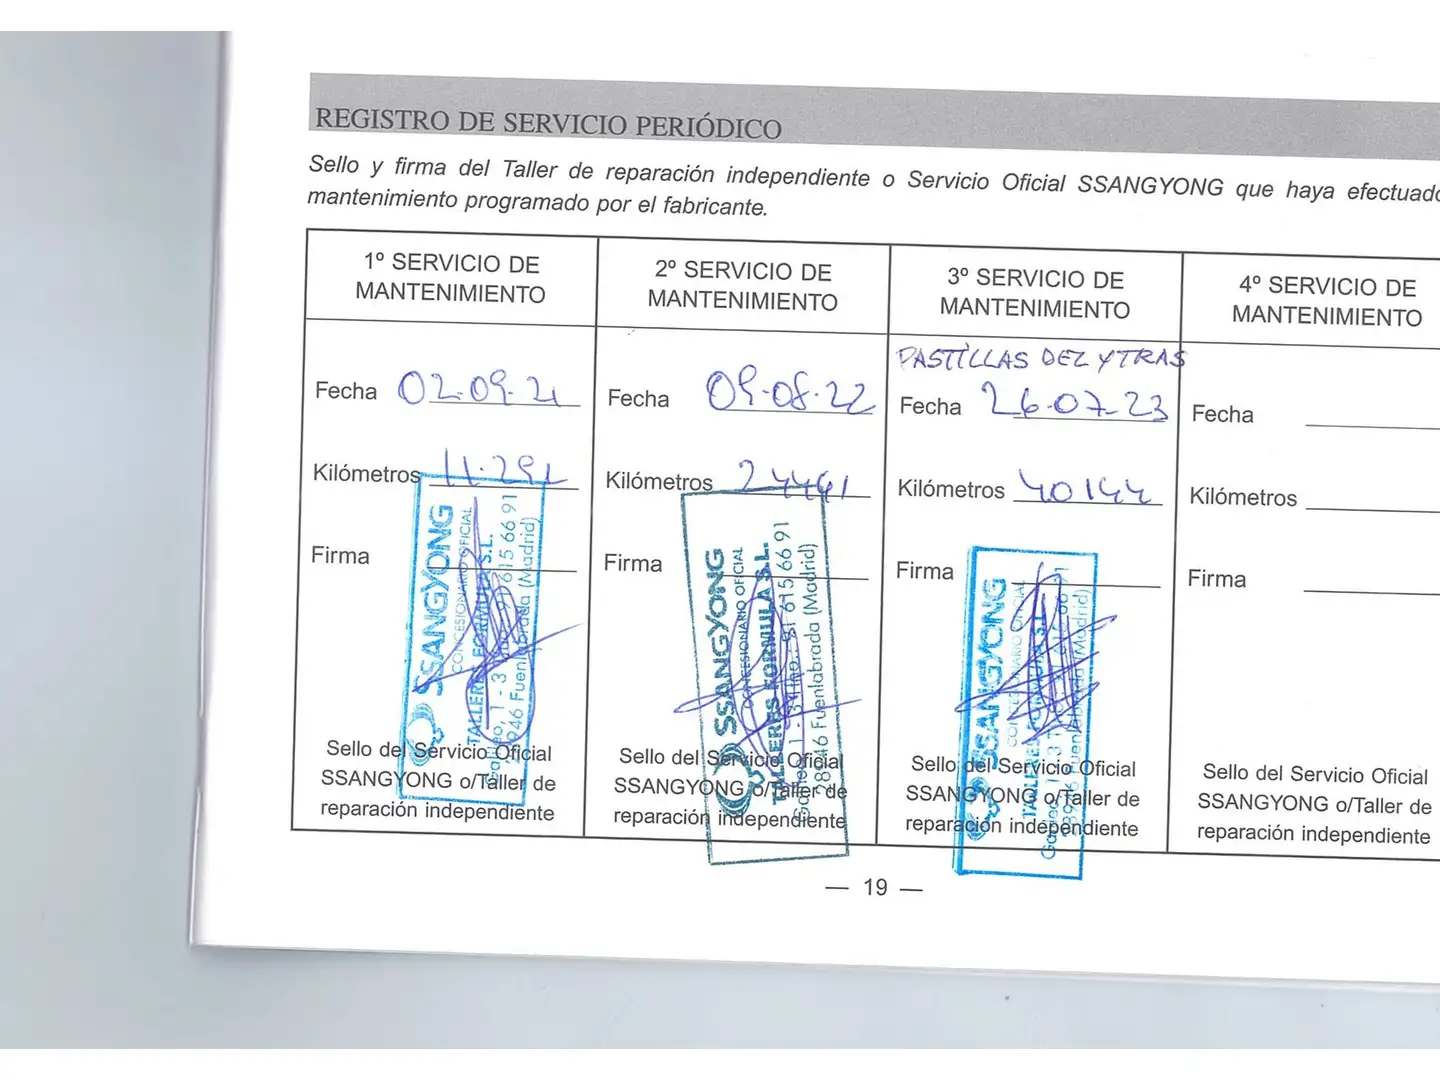 REGISTRO DE SERVICIO PERIÓDICO
Sello y firma del Taller de reparación independiente o Servicio Oficial SSANGYONG que haya efectuado
mantenimiento programado por el fabricante.
1º SERVICIO DE
MANTENIMIENTO
Fecha 02-09-21
Kilómetros 11.291
Firma
SSANGYONG
CONCESIONARIO OFICIAL
TALLERES FORMULA S.L.
615 66 91
Fuenlabrada (Madrid)
Sello del Servicio Oficial
SSANGYONG o/Taller de
reparación independiente
2º SERVICIO DE
MANTENIMIENTO
Fecha 09-08-22
Kilómetros 24461
Firma
SSANGYONG
CONCESIONARIO OFICIAL
TALLERES FORMULA S.L.
91 615 66 91
28946 Fuenlabrada (Madrid)
Sello del Servicio Oficial
SSANGYONG o/Taller de
reparación independiente
3º SERVICIO DE
MANTENIMIENTO
PASTILLAS DEL Y TRAS
Fecha 26-07-23
Kilómetros 40144
Firma
SSANGYONG
(Madrid)
Sello del Servicio Oficial
SSANGYONG o/Taller de
reparación independiente
4º SERVICIO DE
MANTENIMIENTO
Fecha
Kilómetros
Firma
Sello del Servicio Oficial
SSANGYONG o/Taller de
reparación independiente
— 19 —